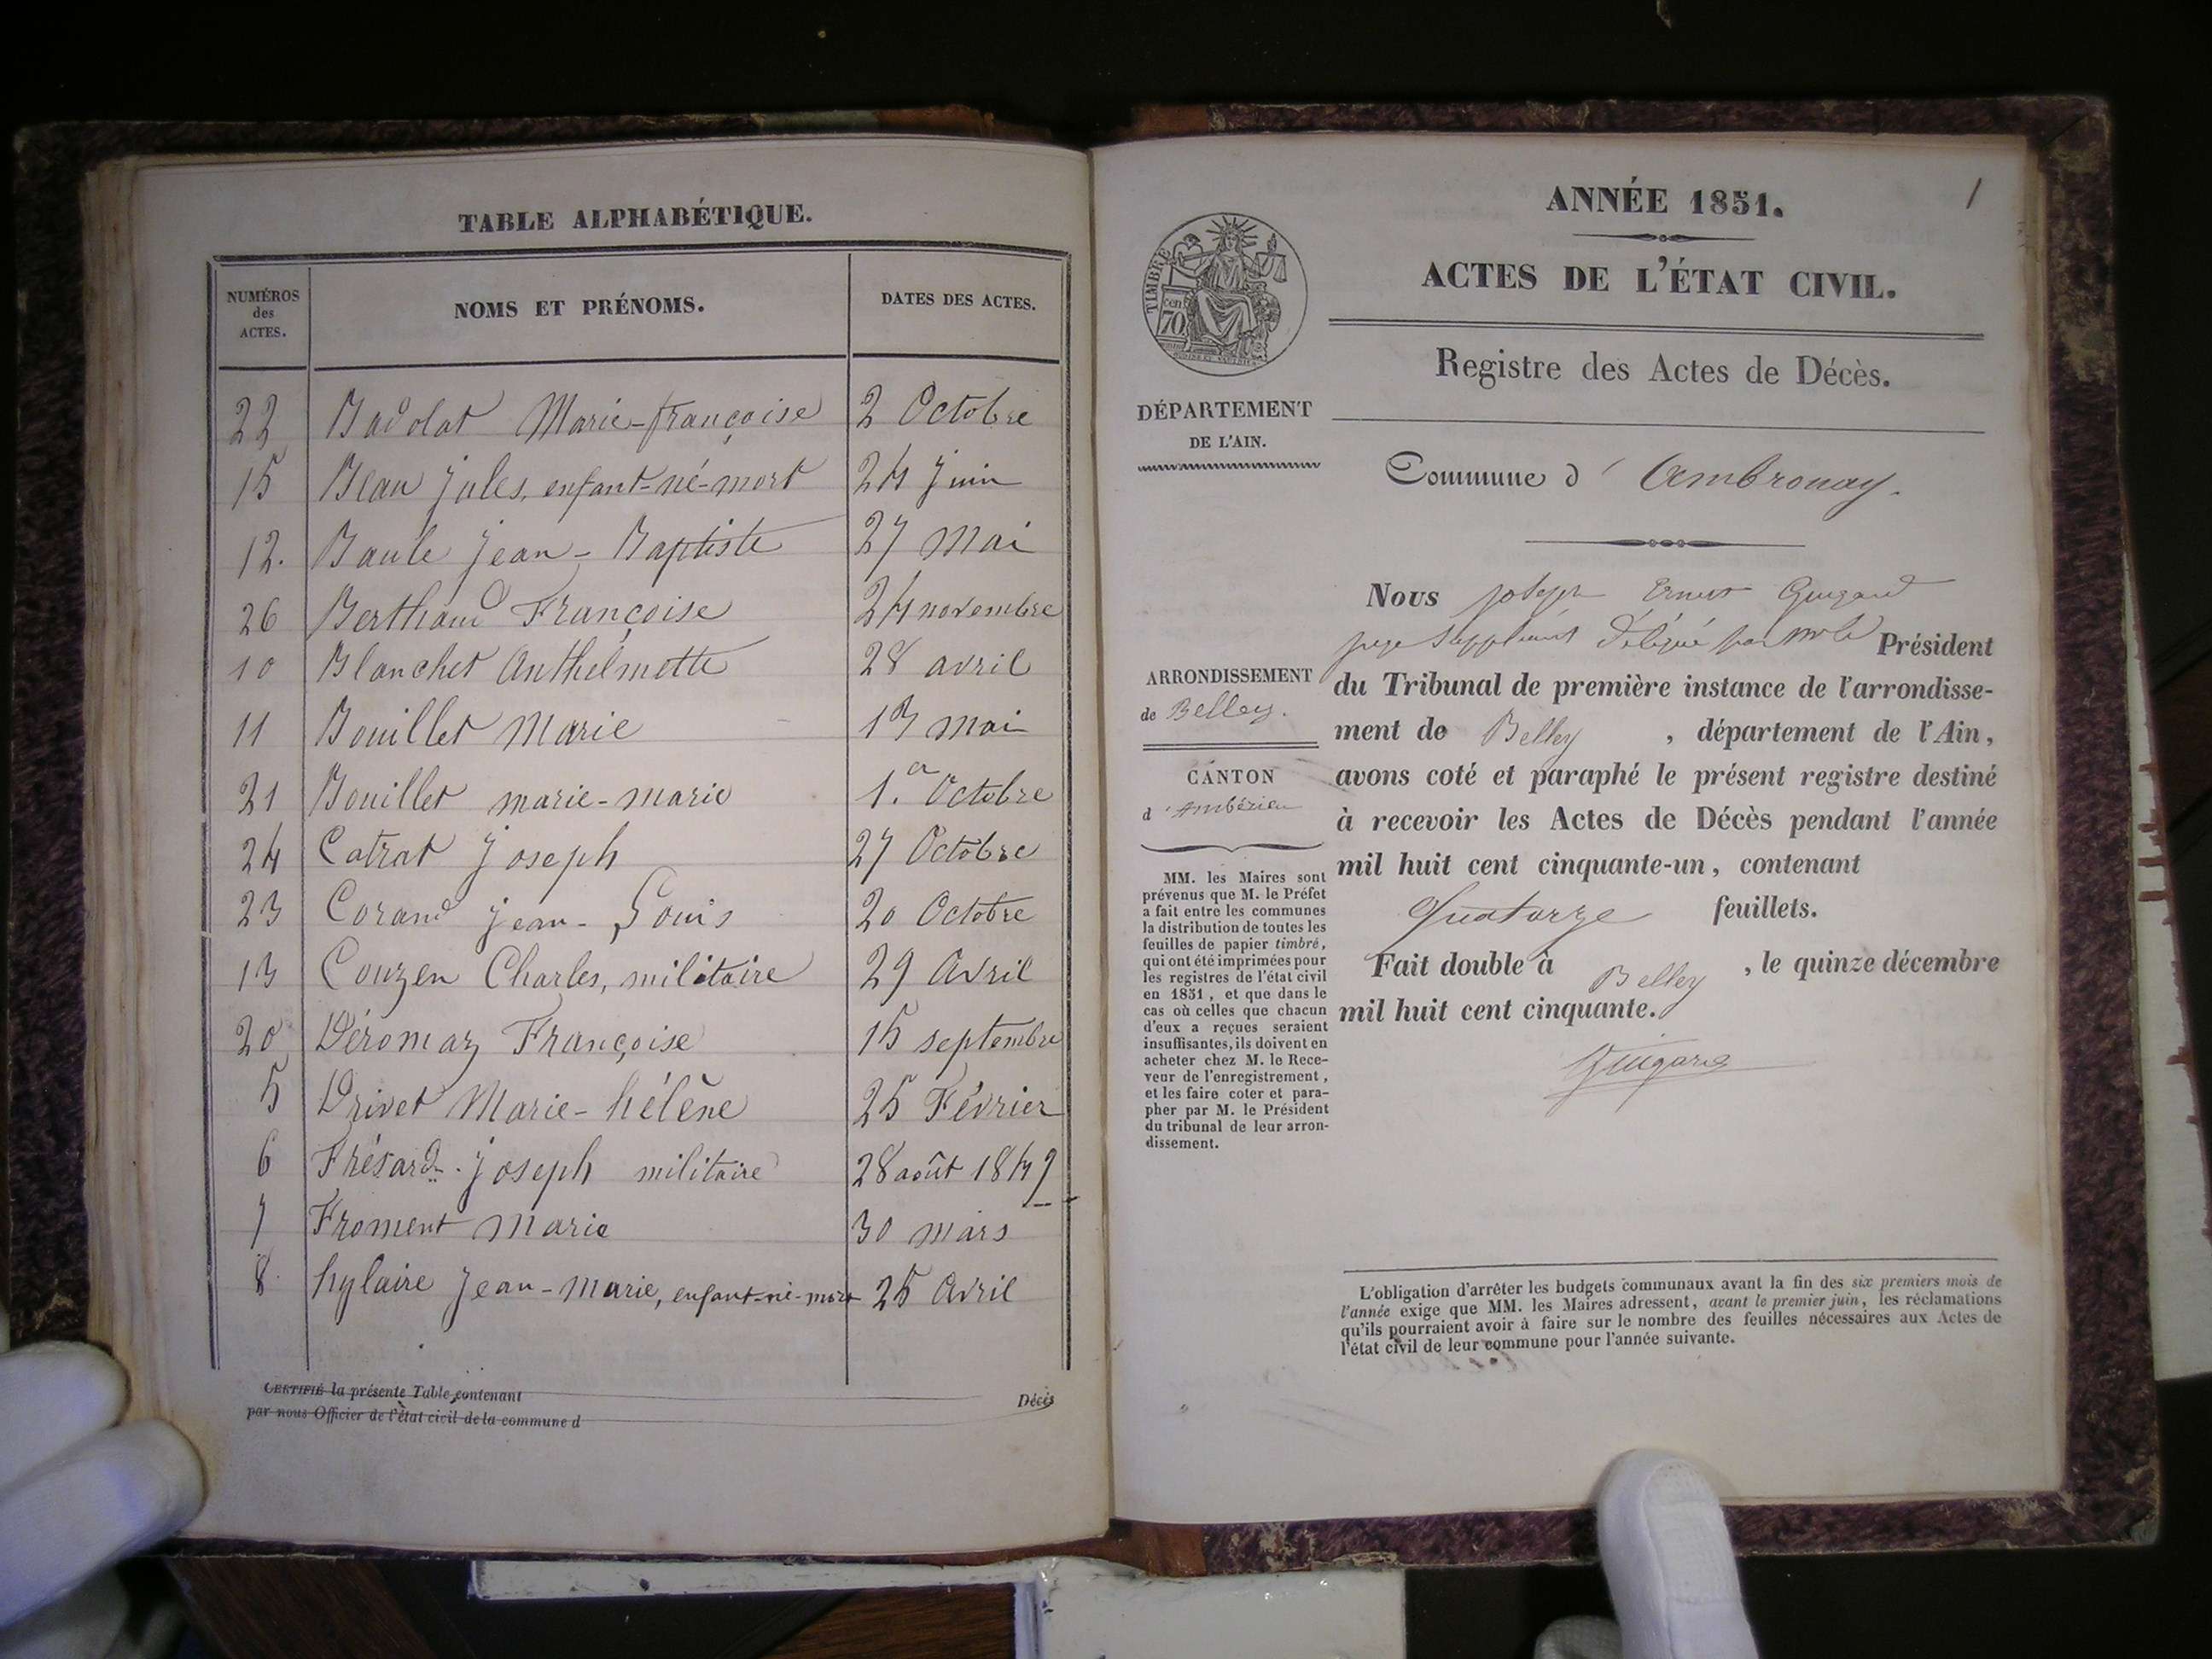 TABLE ALPHABÉTIQUE.
NUMÉROS des ACTES. NOMS ET PRÉNOMS. DATES DES ACTES.
22 Badolat Marie-françoise 2 Octobre
15 Beau jules, enfant-né-mort 24 juin
12. Baule jean-Baptiste 27 mai
26 Berthaud Françoise 24 novembre
10 Blanchet Anthelmette 28 avril
11 Bouillet Marie 13 mai
21 Bouillet marie-marie 1.er Octobre
24 Catrat joseph 27 Octobre
23 Corand jean-Louis 20 Octobre
13 Couzen Charles, militaire 29 Avril
20 Déromaz Françoise 15 septembre
5 Drivet Marie-hélène 25 Février
6 Frésard joseph militaire 28 août 1849
7 Froment Marie 30 mars
8 hylaire Jean-Marie, enfant-né-mort 25 Avril
CERTIFIÉ la présente Table contenant Décès
par nous Officier de l'état civil de la commune d
1
ANNÉE 1851.
ACTES DE L'ÉTAT CIVIL.
Registre des Actes de Décès.
TIMBRE
cen
70
DÉPARTEMENT
DE L'AIN.
Commune d' Ambronay.
ARRONDISSEMENT
de Belley.
CANTON
d'Ambérieu
MM. les Maires sont
prévenus que M. le Préfet
a fait entre les communes
la distribution de toutes les
feuilles de papier timbré,
qui ont été imprimées pour
les registres de l'état civil
en 1851, et que dans le
cas où celles que chacun
d'eux a reçues seraient
insuffisantes, ils doivent en
acheter chez M. le Rece-
veur de l'enregistrement,
et les faire coter et para-
pher par M. le Président
du tribunal de leur arron-
dissement.
Nous joseph Ernest Guigard
juge Suppléant délégué par Mr le Président
du Tribunal de première instance de l'arrondisse-
ment de Belley, département de l'Ain,
avons coté et paraphé le présent registre destiné
à recevoir les Actes de Décès pendant l'année
mil huit cent cinquante-un, contenant
Quatorze feuillets.
Fait double à Belley, le quinze décembre
mil huit cent cinquante.
Guigard
L'obligation d'arrêter les budgets communaux avant la fin des six premiers mois de
l'année exige que MM. les Maires adressent, avant le premier juin, les réclamations
qu'ils pourraient avoir à faire sur le nombre des feuilles nécessaires aux Actes de
l'état civil de leur commune pour l'année suivante.